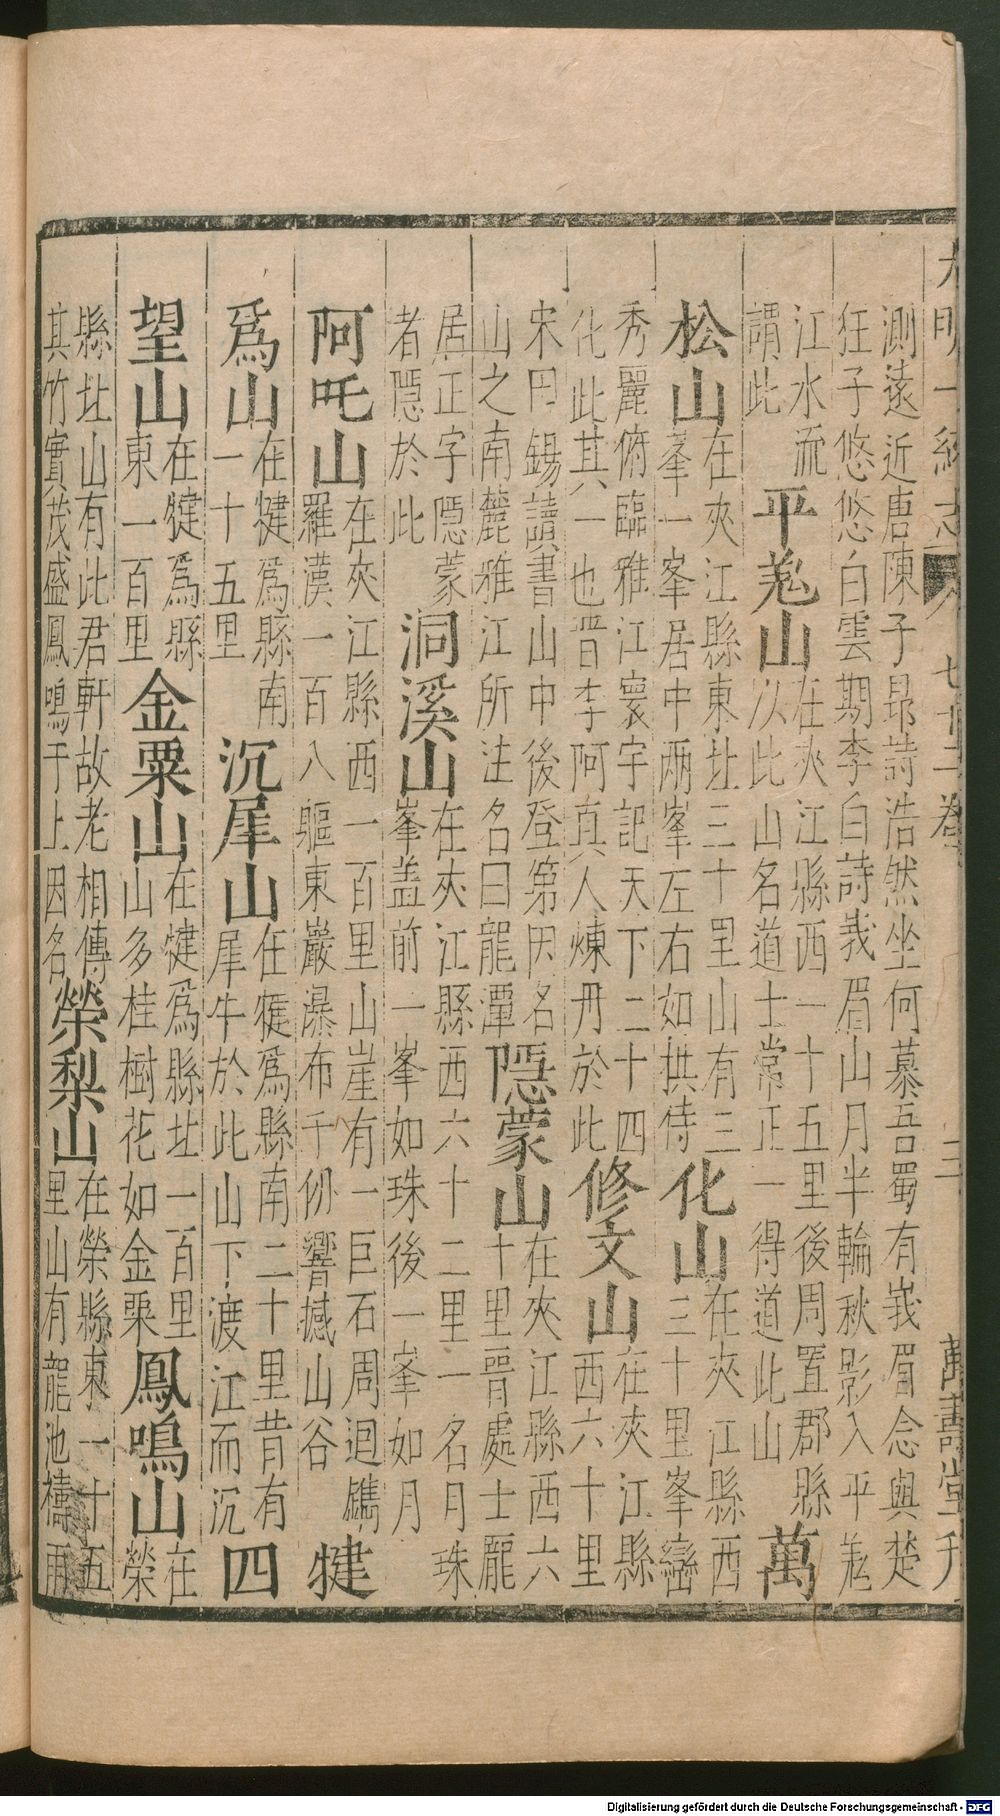 大明一統志 七十二卷 三 萬壽堂刊
測遠近唐陳子昻詩浩然坐何慕吾蜀有峩眉念與楚
狂子悠悠白雲期李白詩峩眉山月半輪秋影入平羗
江水流
謂此
平羗山
在夾江縣西一十五里後周置郡縣
以此山名道士常正一得道此山
萬
松山
在夾江縣東北三十里山有三
峯一峯居中兩峯左右如拱侍
化山
在夾江縣西
三十里峯巒
秀麗俯臨雅江寰宇記天下二十四
化此其一也晉李阿真人煉丹於此
修文山
在夾江縣
西六十里
宋田錫讀書山中後登第因名
山之南麓雅江所注名曰龍潭
隱蒙山
在夾江縣西六
十里晉處士龍
居正字隱蒙
者隱於此
洞溪山
在夾江縣西六十二里一名月珠
峯盖前一峯如珠後一峯如月
阿吒山
在夾江縣西一百里山崖有一巨石周迴鐫
羅漢一百八軀東巖瀑布千仞響撼山谷
犍
爲山
在犍爲縣南
一十五里
沉犀山
在犍爲縣南二十里昔有
犀牛於此山下渡江而沉
四
望山
在犍爲縣
東一百里
金粟山
在犍爲縣北一百里
山多桂樹花如金粟
鳳鳴山
在
榮
縣北山有此君軒故老相傳
其竹實茂盛鳳鳴于上因名
榮梨山
在榮縣東一十五
里山有龍池禱雨
Digitalisierung gefördert durch die Deutsche Forschungsgemeinschaft - DFG